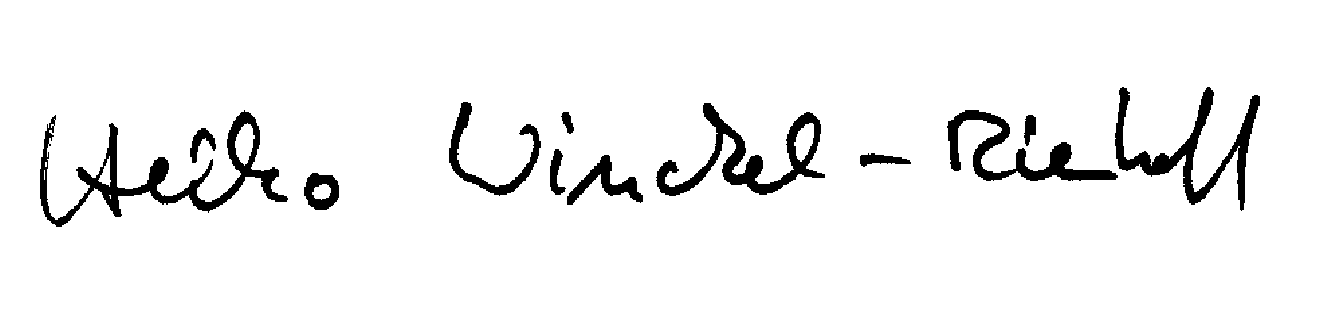 Heiko Winckel-Riehoff